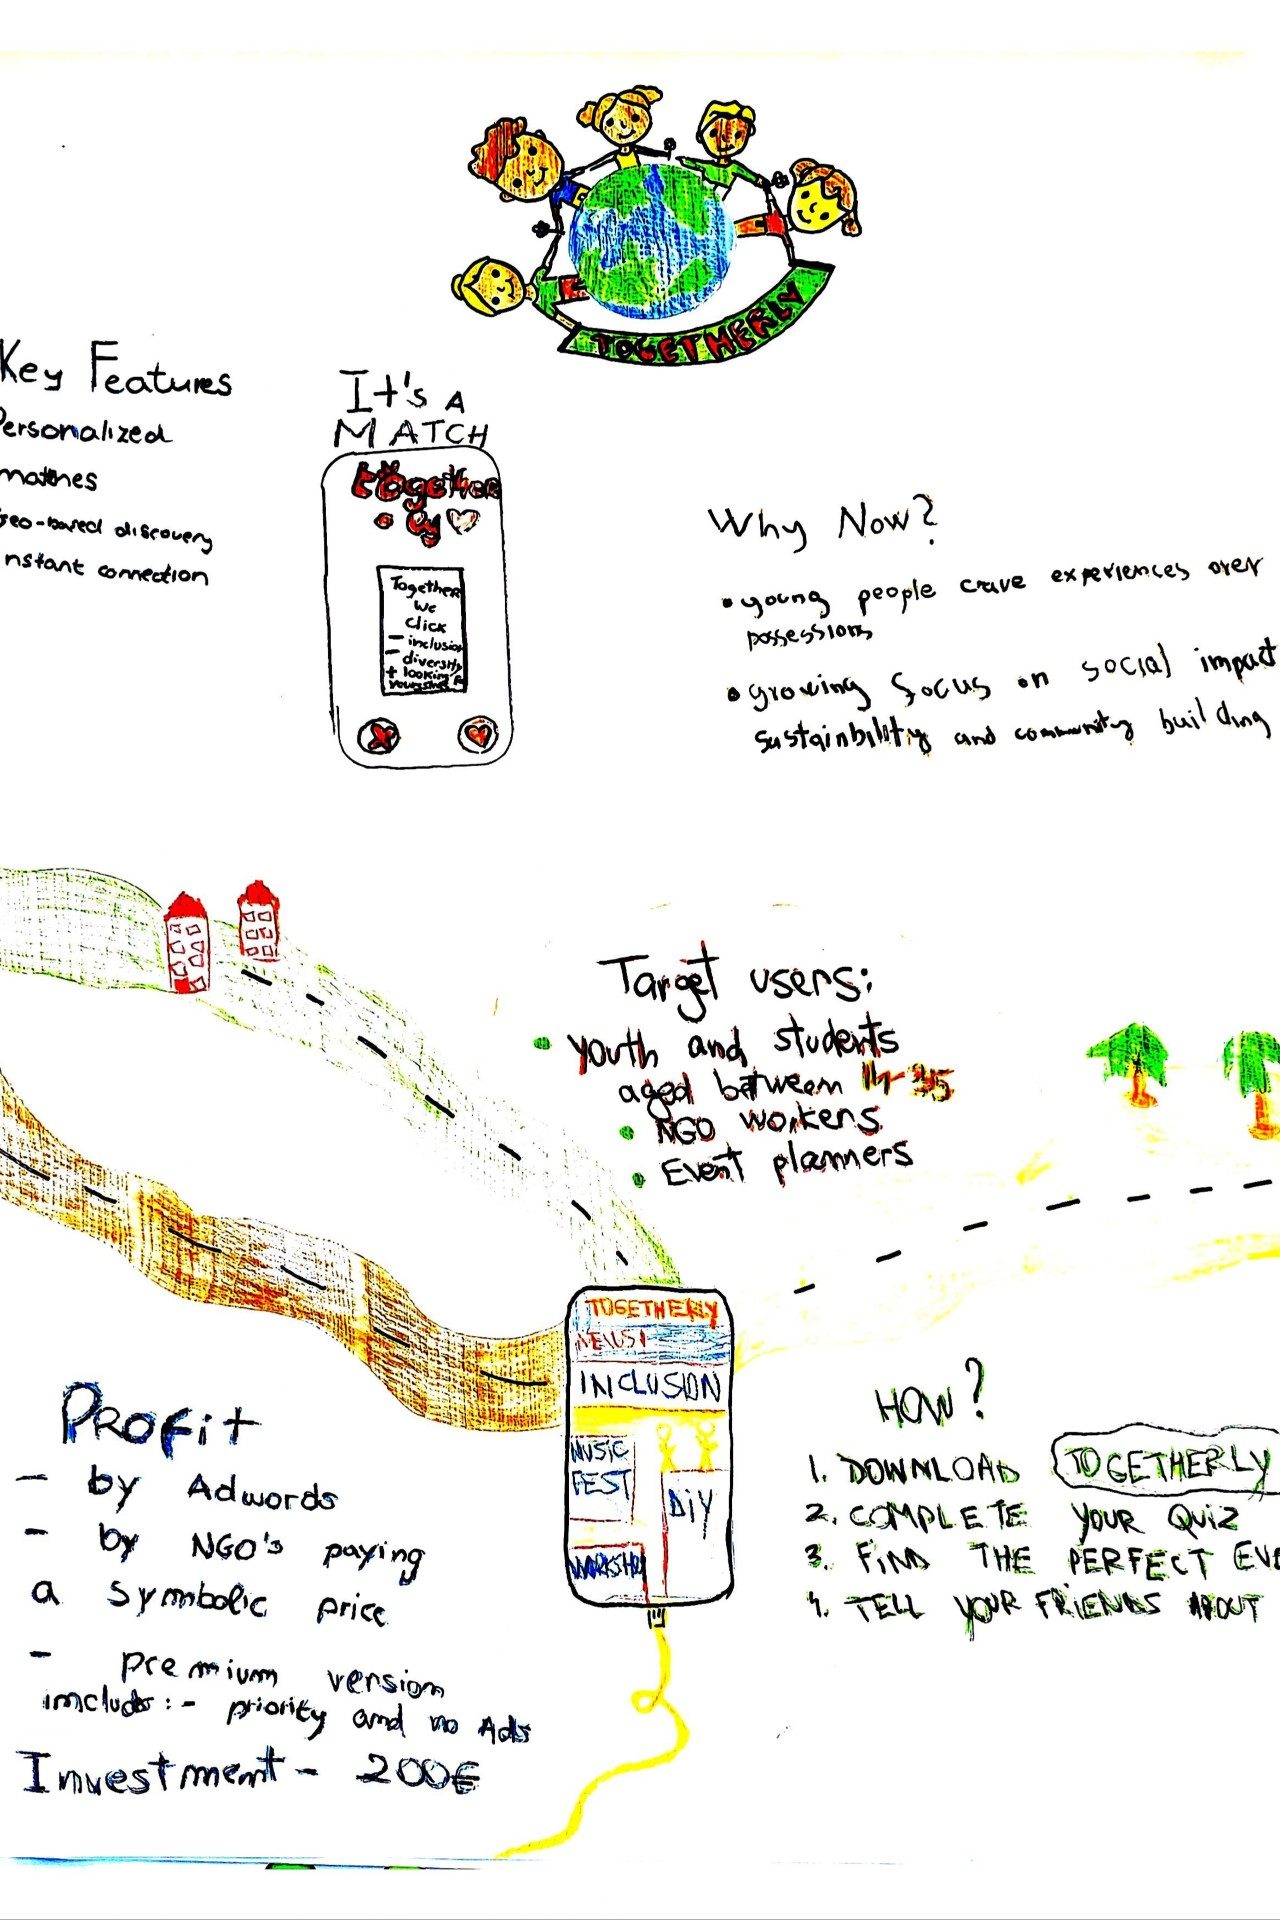 TOGETHERLY
Key Features
Personalized
matches
Geo-based discovery
Instant connection
It's A
MATCH
together
ly
Together
We
click
- inclusion
- diversity
+ looking
Why Now?
• young people crave experiences over
possessions
• growing focus on social impact
sustainbility and community building
Target users:
• youth and students
aged between 35
• NGO workers
• Event planners
TOGETHERLY
NEWS!
INCLUSION
MUSIC
FEST
DiY
WORKSHO
PROFit
- by Adwords
- by NGO's paying
a symbolic price
- premium version
includs: - priority and no Ads
Investment - 200€
HOW?
1. DOWNLOAD TOGETHERLY
2. COMPLETE YOUR QUIZ
3. FIND THE PERFECT EVE
4. TELL YOUR FRIENDS ABOUT